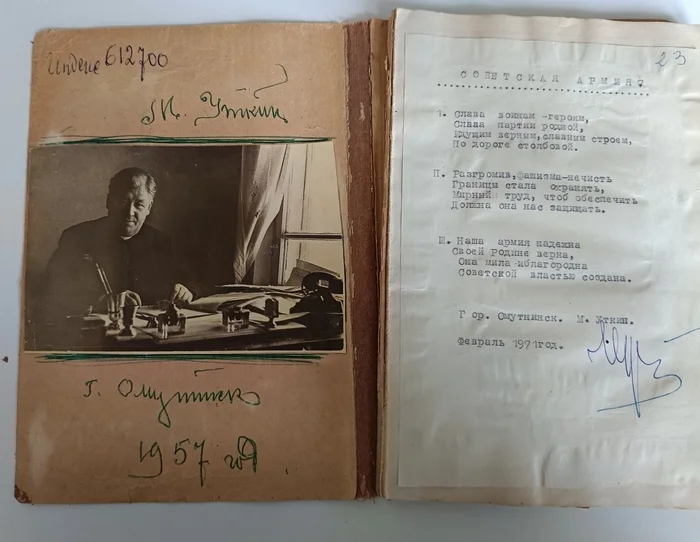 Индекс 612700
М. Уткин
г. Омутнинск
1957 год.
23
СОВЕТСКАЯ АРМИЯ?
1. Слава воинам-героям,
Слава партии родной,
Идущим верным, славным строем,
По дороге столбовой.
П. Разгромив, фашизма-нечисть
Границы стала охранять,
Мирный труд, чтоб обеспечить
Должна она нас защищать.
Ш. Наша армия надежна
Своей Родине верна,
Она мила иблагородна
Советской властью создана.
Гор. Омутнинск. М. Уткин.
Февраль 1971год.